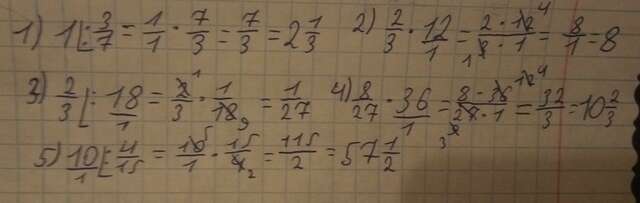 1) 1 : 3/7 = 1/1 · 7/3 = 7/3 = 2 1/3 2) 2/3 · 12/1 = 2 · 12 4 / 1 3 · 1 = 8/1 = 8
3) 2/3 : 18/1 = 2 1 / 3 · 1 / 18 9 = 1/27 4) 8/27 · 36/1 = 8 · 36 12 4 / 3 9 27 · 1 = 32/3 = 10 2/3
5) 10/1 : 4/15 = 10 5 / 1 · 15 / 4 2 = 115/2 = 57 1/2